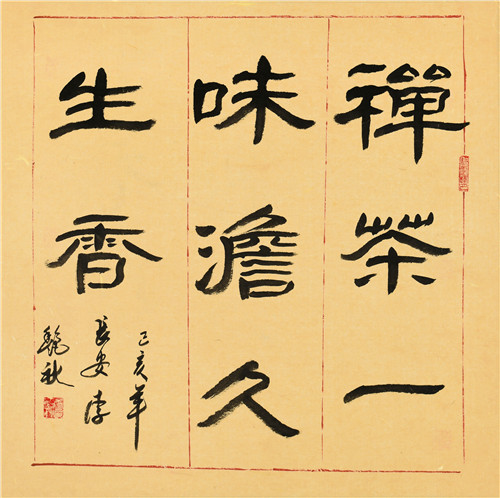 禪茶一
味澹久
生香
己亥年
長安李
秋